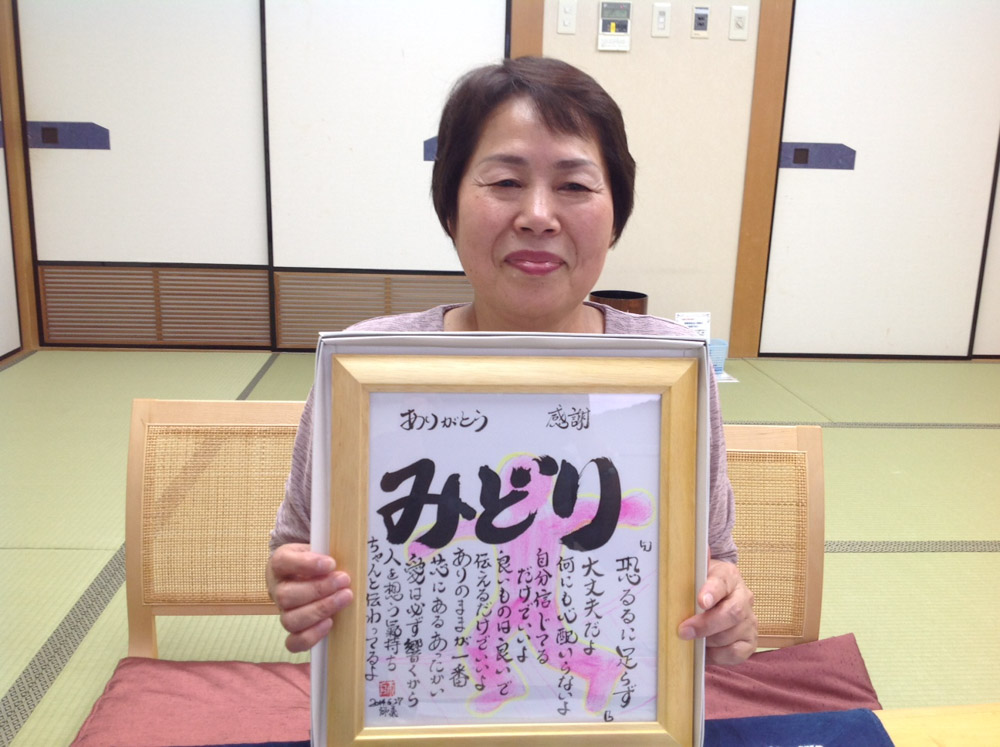 ありがとう
感謝
みどり
『恐るるに足らず』
大丈夫だよ
何にも心配いらないよ
自分信じてる
だけでいいよ
良いものは良いで
伝えるだけでいいよ
ありのままが一番
芯にあるあったかい
愛は必ず響くから
人を想う気持ち
ちゃんと伝わってるよ